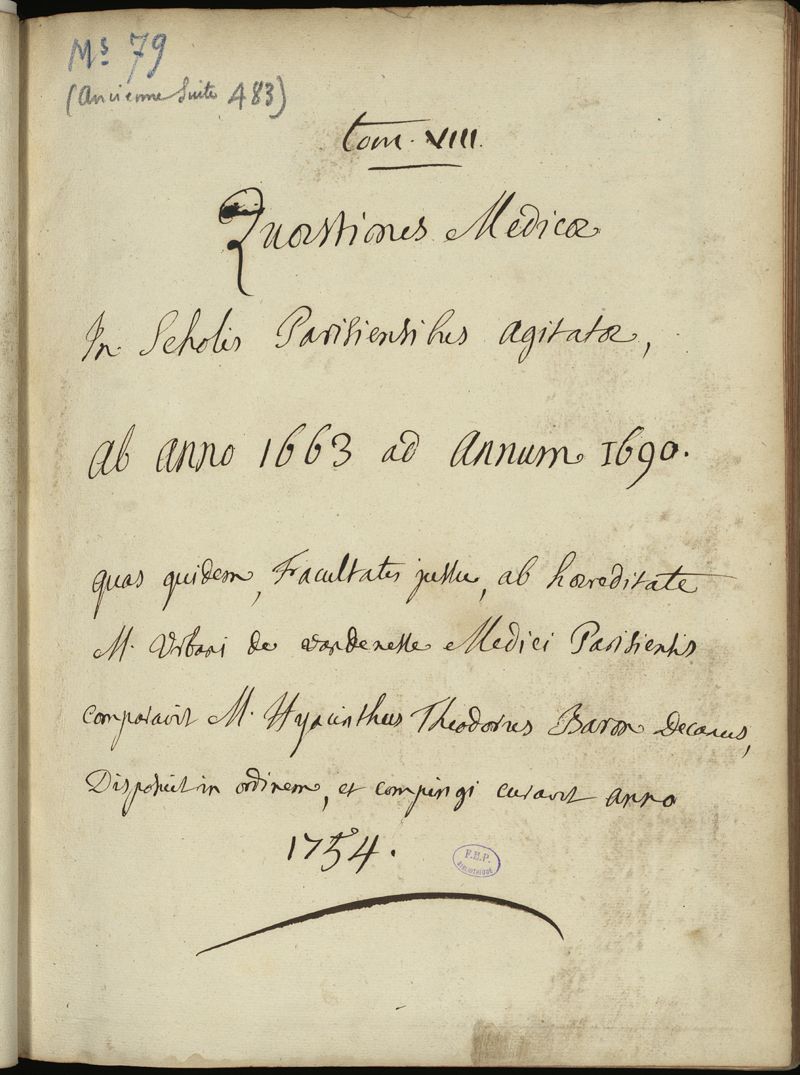 Ms 79
(Ancienne Suite 483)
tom. VIII.
Quæstiones Medicæ
In Scholis Parisiensibus agitatæ,
ab anno 1663 ad annum 1690.
quas quidem, Facultatis jussu, ab hæreditate
M. Urbani de vandenesse Medici Parisiensis
comparavit M. Hyacinthus Theodorus Baron Decanus,
Disposuit in ordinem, et compingi curavit anno
1754.
F.M.P.
BIBLIOTHÈQUE